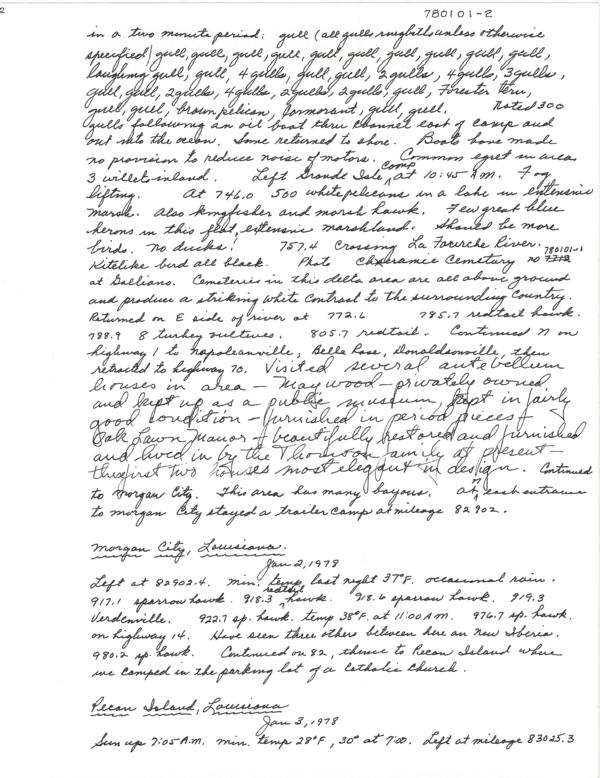 2
780101-2
in a two minute period: gull (all gulls ringbills unless otherwise
specified) gull, gull, gull, gull, gull, gull, gull, gull, gull, gull,
laughing gull, gull, 4 gulls, gull, gull, 2 gulls, 4 gulls, 3 gulls,
gull, gull, 2 gulls, 4 gulls, 2 gulls, 2 gulls, gull, Forster tern,
gull, gull, brown pelican, cormorant, gull, gull. Noted 300
gulls following an oil boat thru channel east of camp and
out into the ocean. Some returned to shore. Boats have made
no provision to reduce noise of motors. Common egret in area
3 willets inland. Left Grande Isle camp at 10:45 A.M. Fog
lifting. At 746.0 500 white pelicans in a lake in extensive
marsh. Also kingfisher and marsh hawk. Few great blue
herons in this flat, extensive marshland. Should be more
birds. No ducks! 757.4 Crossing La Fourche River.
Kitelike bird all black. Photo Cemetery no 780101-1
at Galliano. Cemeteries in this delta area are all above ground
and produce a striking white contrast to the surrounding country.
Returned on E side of river at 772.6 785.7 redtail hawk.
788.9 8 turkey vultures. 805.7 redtail. Continued N on
highway 1 to Napoleanville, Belle Rose, Donaldsonville, then
retraced to highway 70. Visited several antebellum
houses in area - Maywood - privately owned
and kept up as a public museum, kept in fairly
good condition - furnished in period pieces &
Oak Lawn Manor - beautifully restored and furnished
and lived in by the Thomson family at present -
the first two houses most elegant in design. Continued
to Morgan City. This area has many bayous. At east entrance
to Morgan City stayed a trailer camp at mileage 82902.
Morgan City, Louisiana.
Jan 2, 1978
Left at 82902.4. min. temp. last night 37°F. occasional rain.
917.1 sparrow hawk. 918.3 redtail hawk. 918.6 sparrow hawk. 919.3
Verdenville. 922.7 sp. hawk. temp 38°F. at 11:00 A.M. 976.7 sp. hawk.
on highway 14. Have seen three others between here an new Iberia.
980.2 sp. hawk. Continued on 82, thence to Pecan Island where
we camped in the parking lot of a Catholic Church.
Pecan Island, Louisiana
Jan 3, 1978
Sun up 7:05 A.M. min. temp 28°F, 30° at 7:00. Left at mileage 83025.3